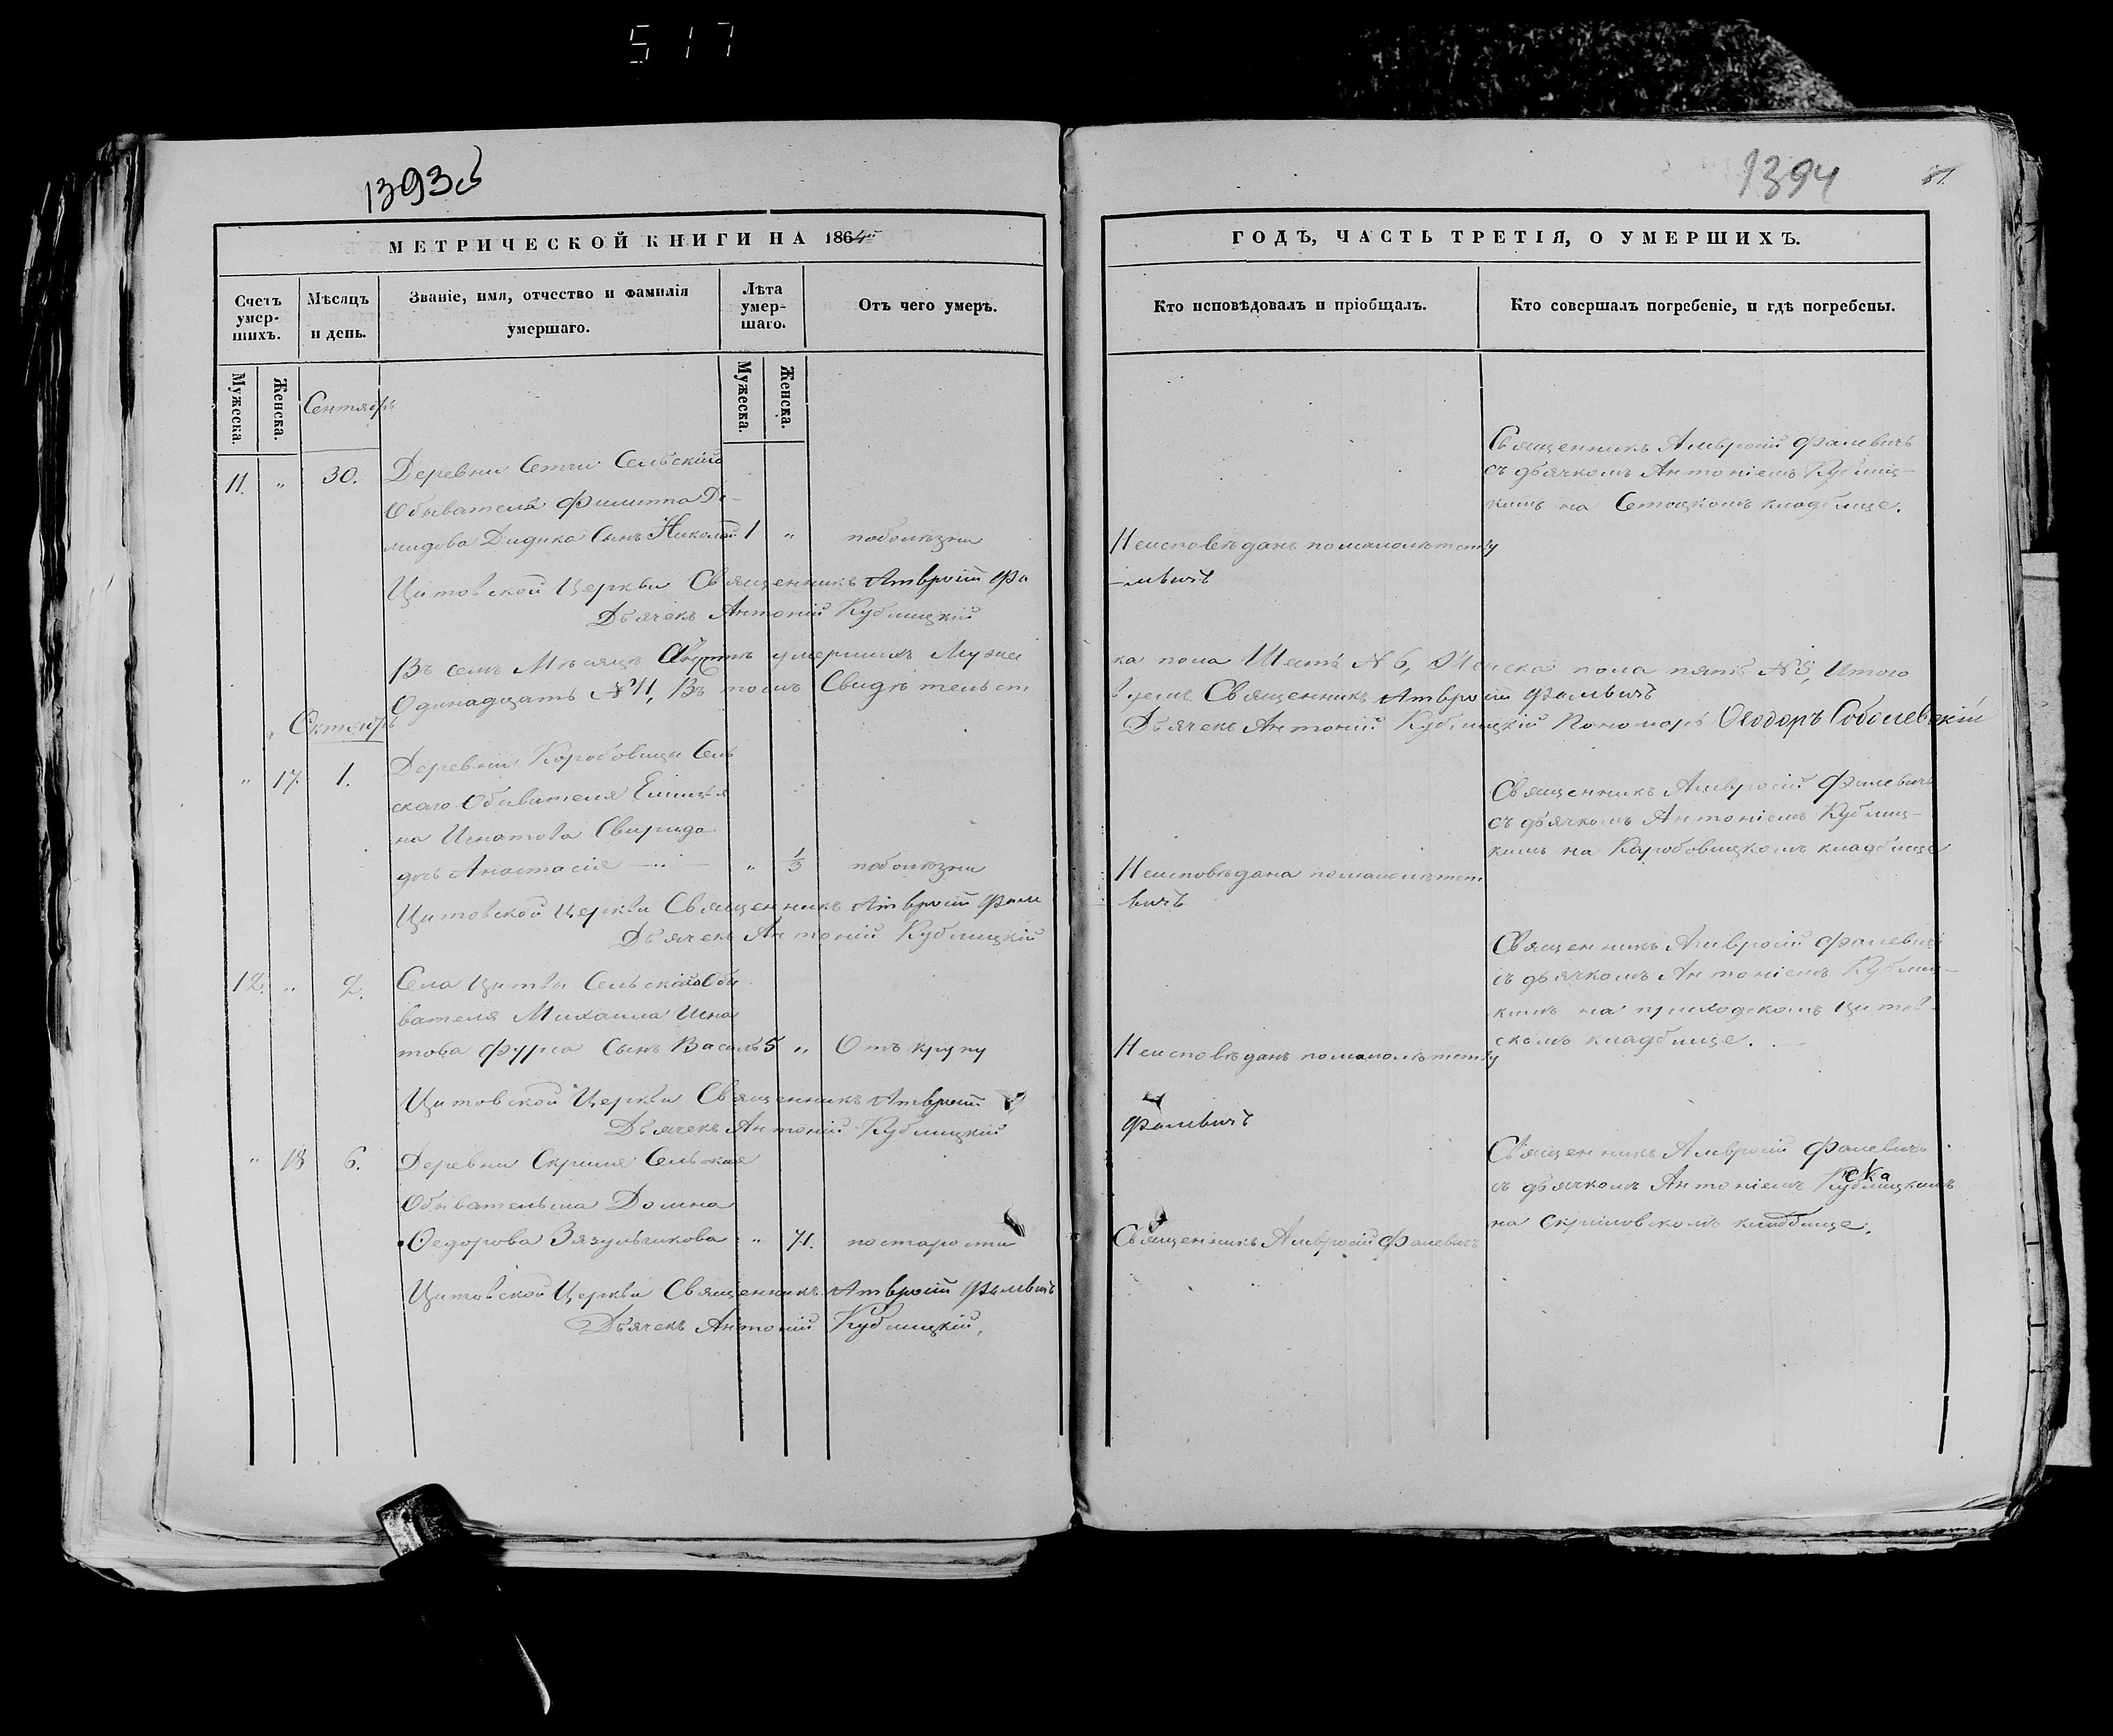 517
1393об
1394
81.
МЕТРИЧЕСКОЙ КНИГИ НА 1864й
ГОДЪ, ЧАСТЬ ТРЕТІЯ, О УМЕРШИХЪ.
Счетъ умер-шихъ.
Мѣсяцъ и день.
Званіе, имя, отчество и фамилія умершаго.
Лѣта умер-шаго.
Отъ чего умеръ.
Кто исповѣдовалъ и пріобщалъ.
Кто совершалъ погребеніе, и гдѣ погребены.
Мужеска.
Женска.
Сентябрь
Мужеска.
Женска.
11. " 30. Деревни Сетчи Сельскаго
Обывателя Филиппа Де-
мидова Дидика Сынъ Николай 1 " поболѣзни
Неисповѣданъ помалолѣтству
Священникъ Амвросій Фалевичъ
съ дьячкомъ Антоніемъ Кублиц-
кимъ на Сетецкомъ кладбище.
Цитовской Церкви Священникъ Амвросій Фа
-левичъ
Дьячекъ Антоній Кублицкій
Въ семъ Мѣсяцѣ умершихъ Мужес
ка пола Шесть №6, Женска пола пять №5, Итого
Одинадцать №11, Въ томъ Свидѣтельст
вуемъ Священникъ Амвросій Фалевичъ
Дьячекъ Антоній Кублицкій Пономарь Ѳеодоръ Соболевскій
Октябрь
" 17. 1. Деревни Коробовцы Сель
скаго Обывателя
на Игнатова Свирида
дочь Анастасія " 1/3 поболѣзни
Неисповѣдана помалолѣтст
Священникъ Амвросій Фалевичъ
съ дьячкомъ Антоніемъ Кублиц-
кимъ на Коробовицкомъ кладбище
Цитовской Церкви Священникъ Амвросій Фале
вичъ
Дьячекъ Антоній Кублицкій
12. " 2. Села Цитвы Сельскаго Обы
вателя Михаила Игна
това Фурса Сынъ Василь 5 " Отъ крупу
Неисповѣданъ помалолѣтству
Священникъ Амвросій Фалевичъ
съ дьячкомъ Антоніемъ Кублиц-
кимъ на приходскомъ Цитов-
скомъ кладбище.
Цитовской Церкви Священникъ Амвросій
Фалевичъ
Дьячекъ Антоній Кублицкій
" 18 6. Деревни Скриля Сельская
Обывательша Домна
Ѳедорова Зязульчикова " 71. постарости
Священникъ Амвросій Фалевичъ
Священникъ Амвросій Фалевичъ
съ дьячкомъ Антоніемъ Кублицкимъ
на Скрилевскомъ кладбище.
Цитовской Церкви Священникъ Амвросій Фалевичъ
Дьячекъ Антоній Кублицкій,